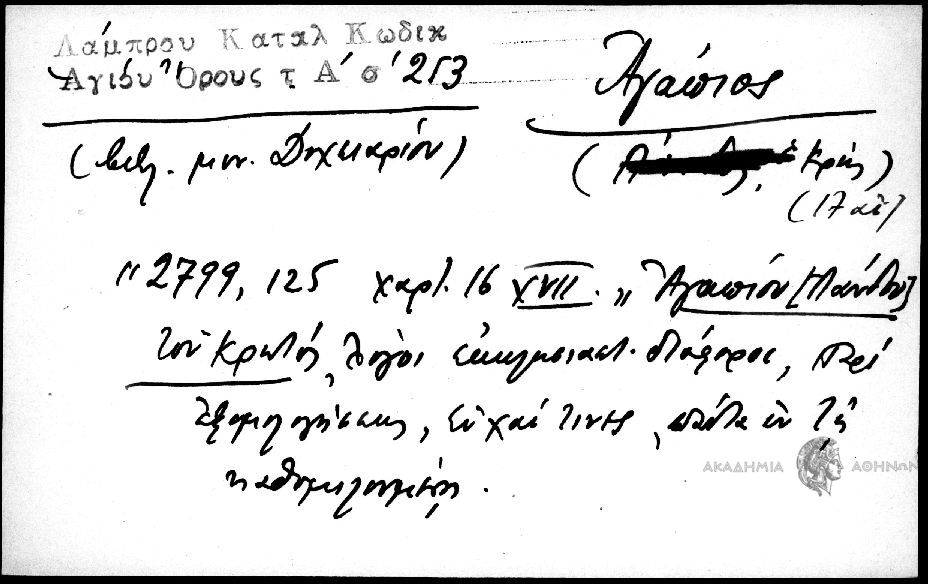 Λάμπρου Καταλ Κωδικ
Αγίου Όρους τ Α' σ' 253
Αγάπιος
(βιβ. μον. Δοχειαρίου)
( ὁ Κρής)
(17 αἰ)
"2799, 125 χαρτ. 16 XVII. "Ἀγαπίου [Λάνδου]
τοῦ Κρητός, λόγοι ἐκκλησιαστ. διάφοροι, περὶ
ἐξομολογήσεως, εὐχαί τινες, πάντα ἐν τῇ
καθομιλουμένῃ.
ΑΚΑΔΗΜΙΑ ΑΘΗΝΩΝ